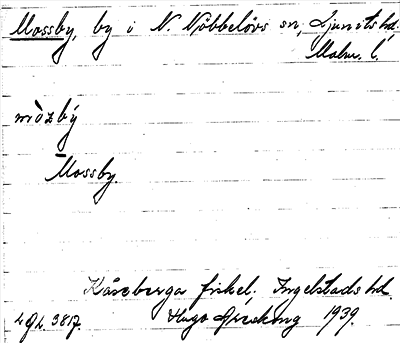 Mossby, by i N. Nöbbelövs sn, Ljunits hd.
Malm. l.
mòzbý
Mossby.
Kåseberga fiskel. Ingelstads hd.
Hugo Areskoug 1939.